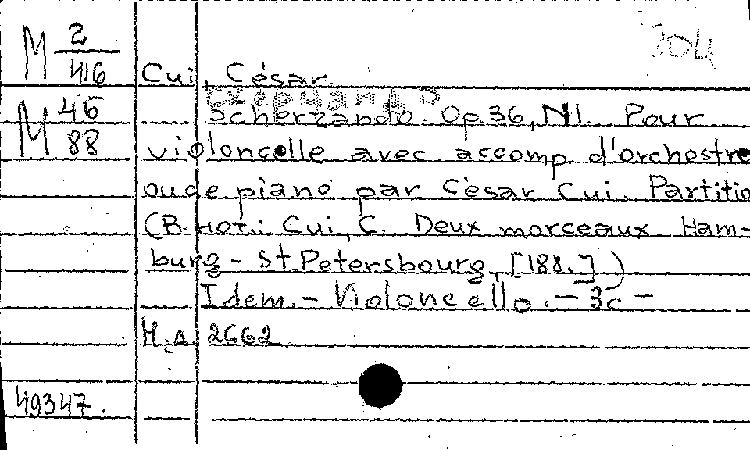 M 2/416
Cui, César.
M 46/88
Scherzando. Op. 36, N1. Pour
violoncelle avec accomp d'orchestre
ou de piano par César Cui. Partitio
(В нот.: Cui, C. Deux morceaux Ham-
burg - St Petersbourg, [188.])
Idem. - Violoncello. - 3c -
Н.д. 2662
49347.